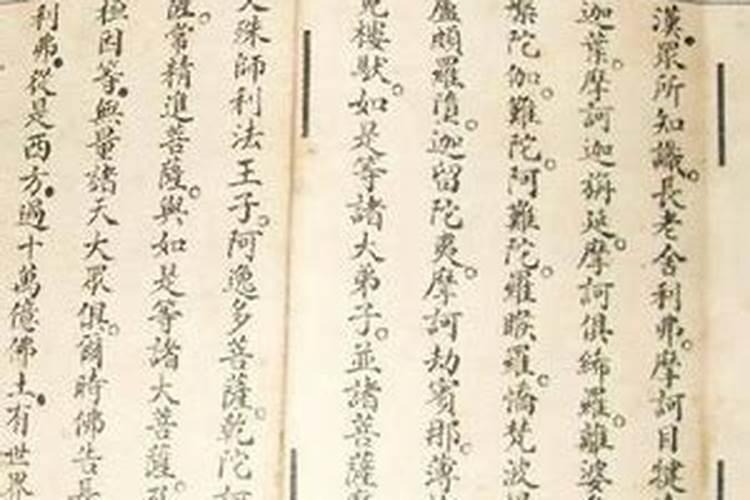 漢。眾所知識。長老舍利弗。摩訶目犍
迦葉。摩訶迦旃延。摩訶俱絺羅。離婆
槃陀伽。難陀。阿難陀。羅睺羅。憍梵波
盧頗羅墮。迦留陀夷。摩訶劫賓那。薄
樓馱。如是等諸大弟子。並諸菩薩
殊師利法王子。阿逸多菩薩。乾陀訶
薩。常精進菩薩。與如是等諸大菩薩。
桓因等。無量諸天大眾俱。爾時佛告長
利弗。從是西方。過十萬億佛土。有世界